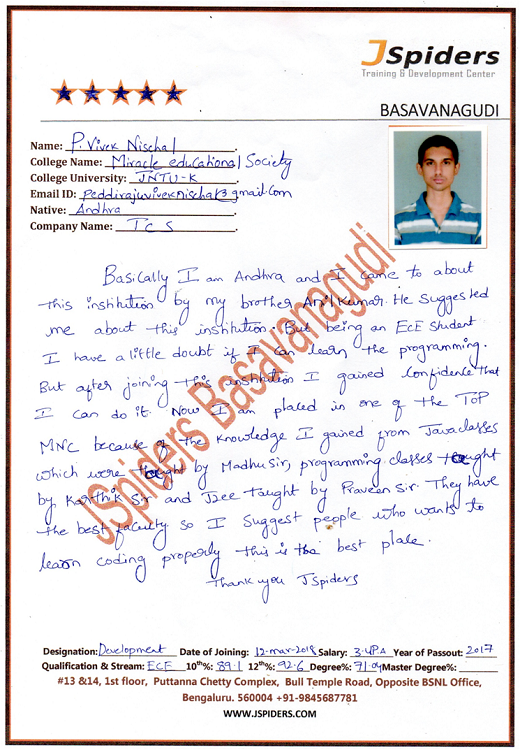 JSpiders
Training & Development Center
BASAVANAGUDI
Name: P. Vivek Nischal
College Name: Miracle educational Society
College University: JNTU-K
Email ID: peddirajuviveknischal@gmail.com
Native: Andhra
Company Name: TCS
Basically I am Andhra and I came to about
this institution by my brother Anil Kumar. He suggested
me about this institution. But being an ECE Student
I have a little doubt if I can learn the programming.
But after joining this institution I gained confidence that
I can do it. Now I am placed in one of the TOP
MNC because of the knowledge I gained from Java classes
which were taught by Madhu Sir, programming classes taught
by Karthik Sir and J2ee taught by Praveen Sir. They have
the best faculty so I Suggest people who wants to
learn coding properly this is the best place.
Thank you JSpiders
JSpiders Basavanagudi
Designation: Development Date of Joining: 12-mar-2018 Salary: 3.4PA Year of Passout: 2017
Qualification & Stream: ECE 10th%: 89.1 12th%: 92.6 Degree%: 71.04 Master Degree%:
#13 &14, 1st floor, Puttanna Chetty Complex, Bull Temple Road, Opposite BSNL Office,
Bengaluru. 560004 +91-9845687781
WWW.JSPIDERS.COM